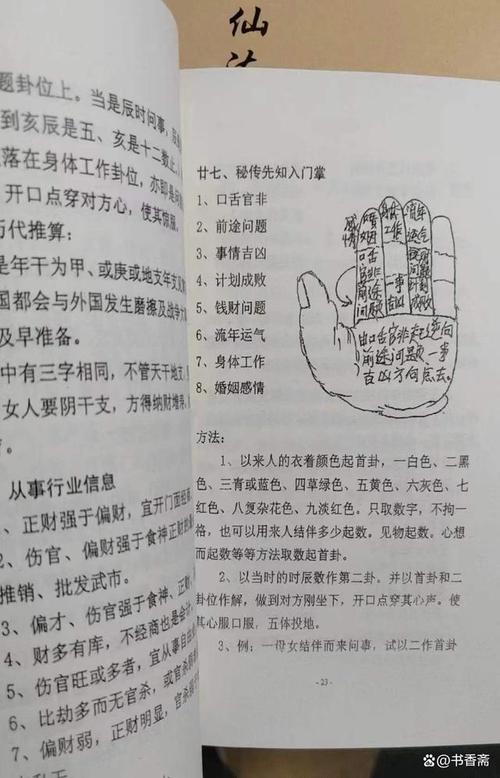 仙
题卦位上。当是辰时问事,
到亥辰是五、亥是十二数止,
落在身体工作卦位,亦即是问
开口点穿对方心,使其惊服。
历代推算:
是年干为甲、或庚或地支年支
国都会与外国发生磨擦及战争
及早准备。
中有三字相同,不管天干地支,
女人要阴干支,方得纳财增
。
从事行业信息
、正财强于偏财,宜开门面经
、伤官、偏财强于食神正财的
推销、批发武市。
3、偏才、伤官强于食神、正财,
4、财多有库,不经商也是会
5、伤官旺或多者,宜从事自由
6、比劫多而无官杀,或官杀
7、偏财弱,正财明显,官杀
廿七、秘传先知入门掌
1、口舌官非
2、前途问题
3、事情吉凶
4、计划成败
5、钱财问题
6、流年运气
7、身体工作
8、婚姻感情
感情
婚姻
口舌官非
前途问题
身体工作
一事吉凶
流年运气
钱财问题
计划成败
由口舌官非起逆向
前途问题、一事
吉凶方向念去。
方法:
1、以来人的衣着颜色起首卦,一白色、二黑
色、三青或蓝色、四草绿色、五黄色、六灰色、七
红色、八复杂花色、九淡红色。只取数字,不拘一
格,也可以用来人结伴多少起数。见物起数。心想
而起数等等方法取数起首卦。
2、以当时的时辰数作第二卦。并以首卦和二
卦位作解,做到对方刚坐下,开口点穿其心声。使
其心服口服,五体投地。
3、例:一母女结伴而来问事,试以二作首卦
- 23 -
@书香斋